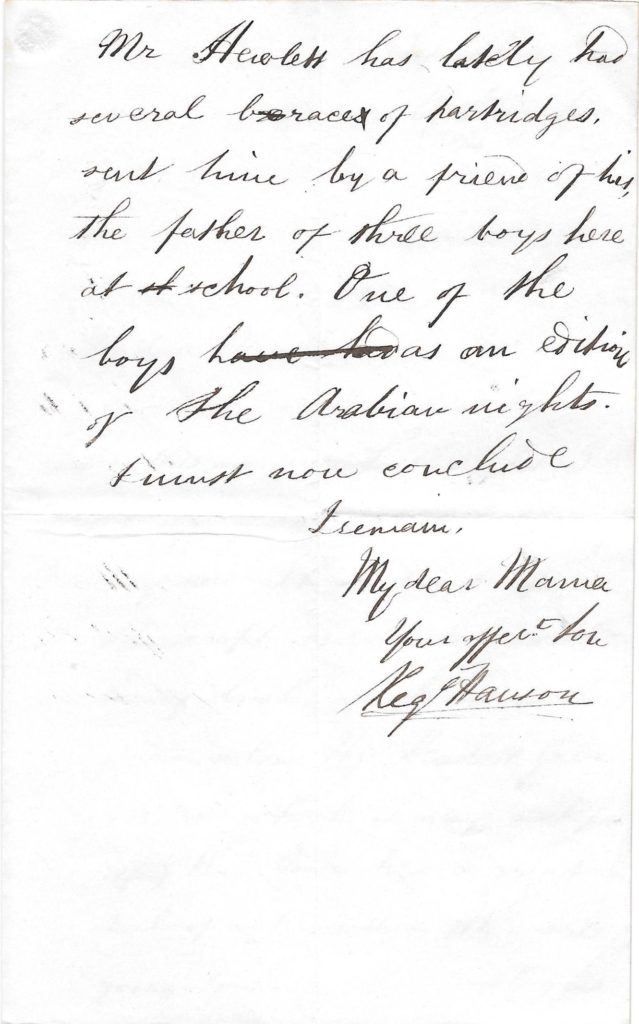 Mr Hewlett has lately had
several braces of partridges,
sent him by a friend of his,
the father of three boys here
at school. One of the
boys has an edition
of the Arabian nights.
I must now conclude
I remain,
My dear Mama
Your affect. Son
Regd Hanson